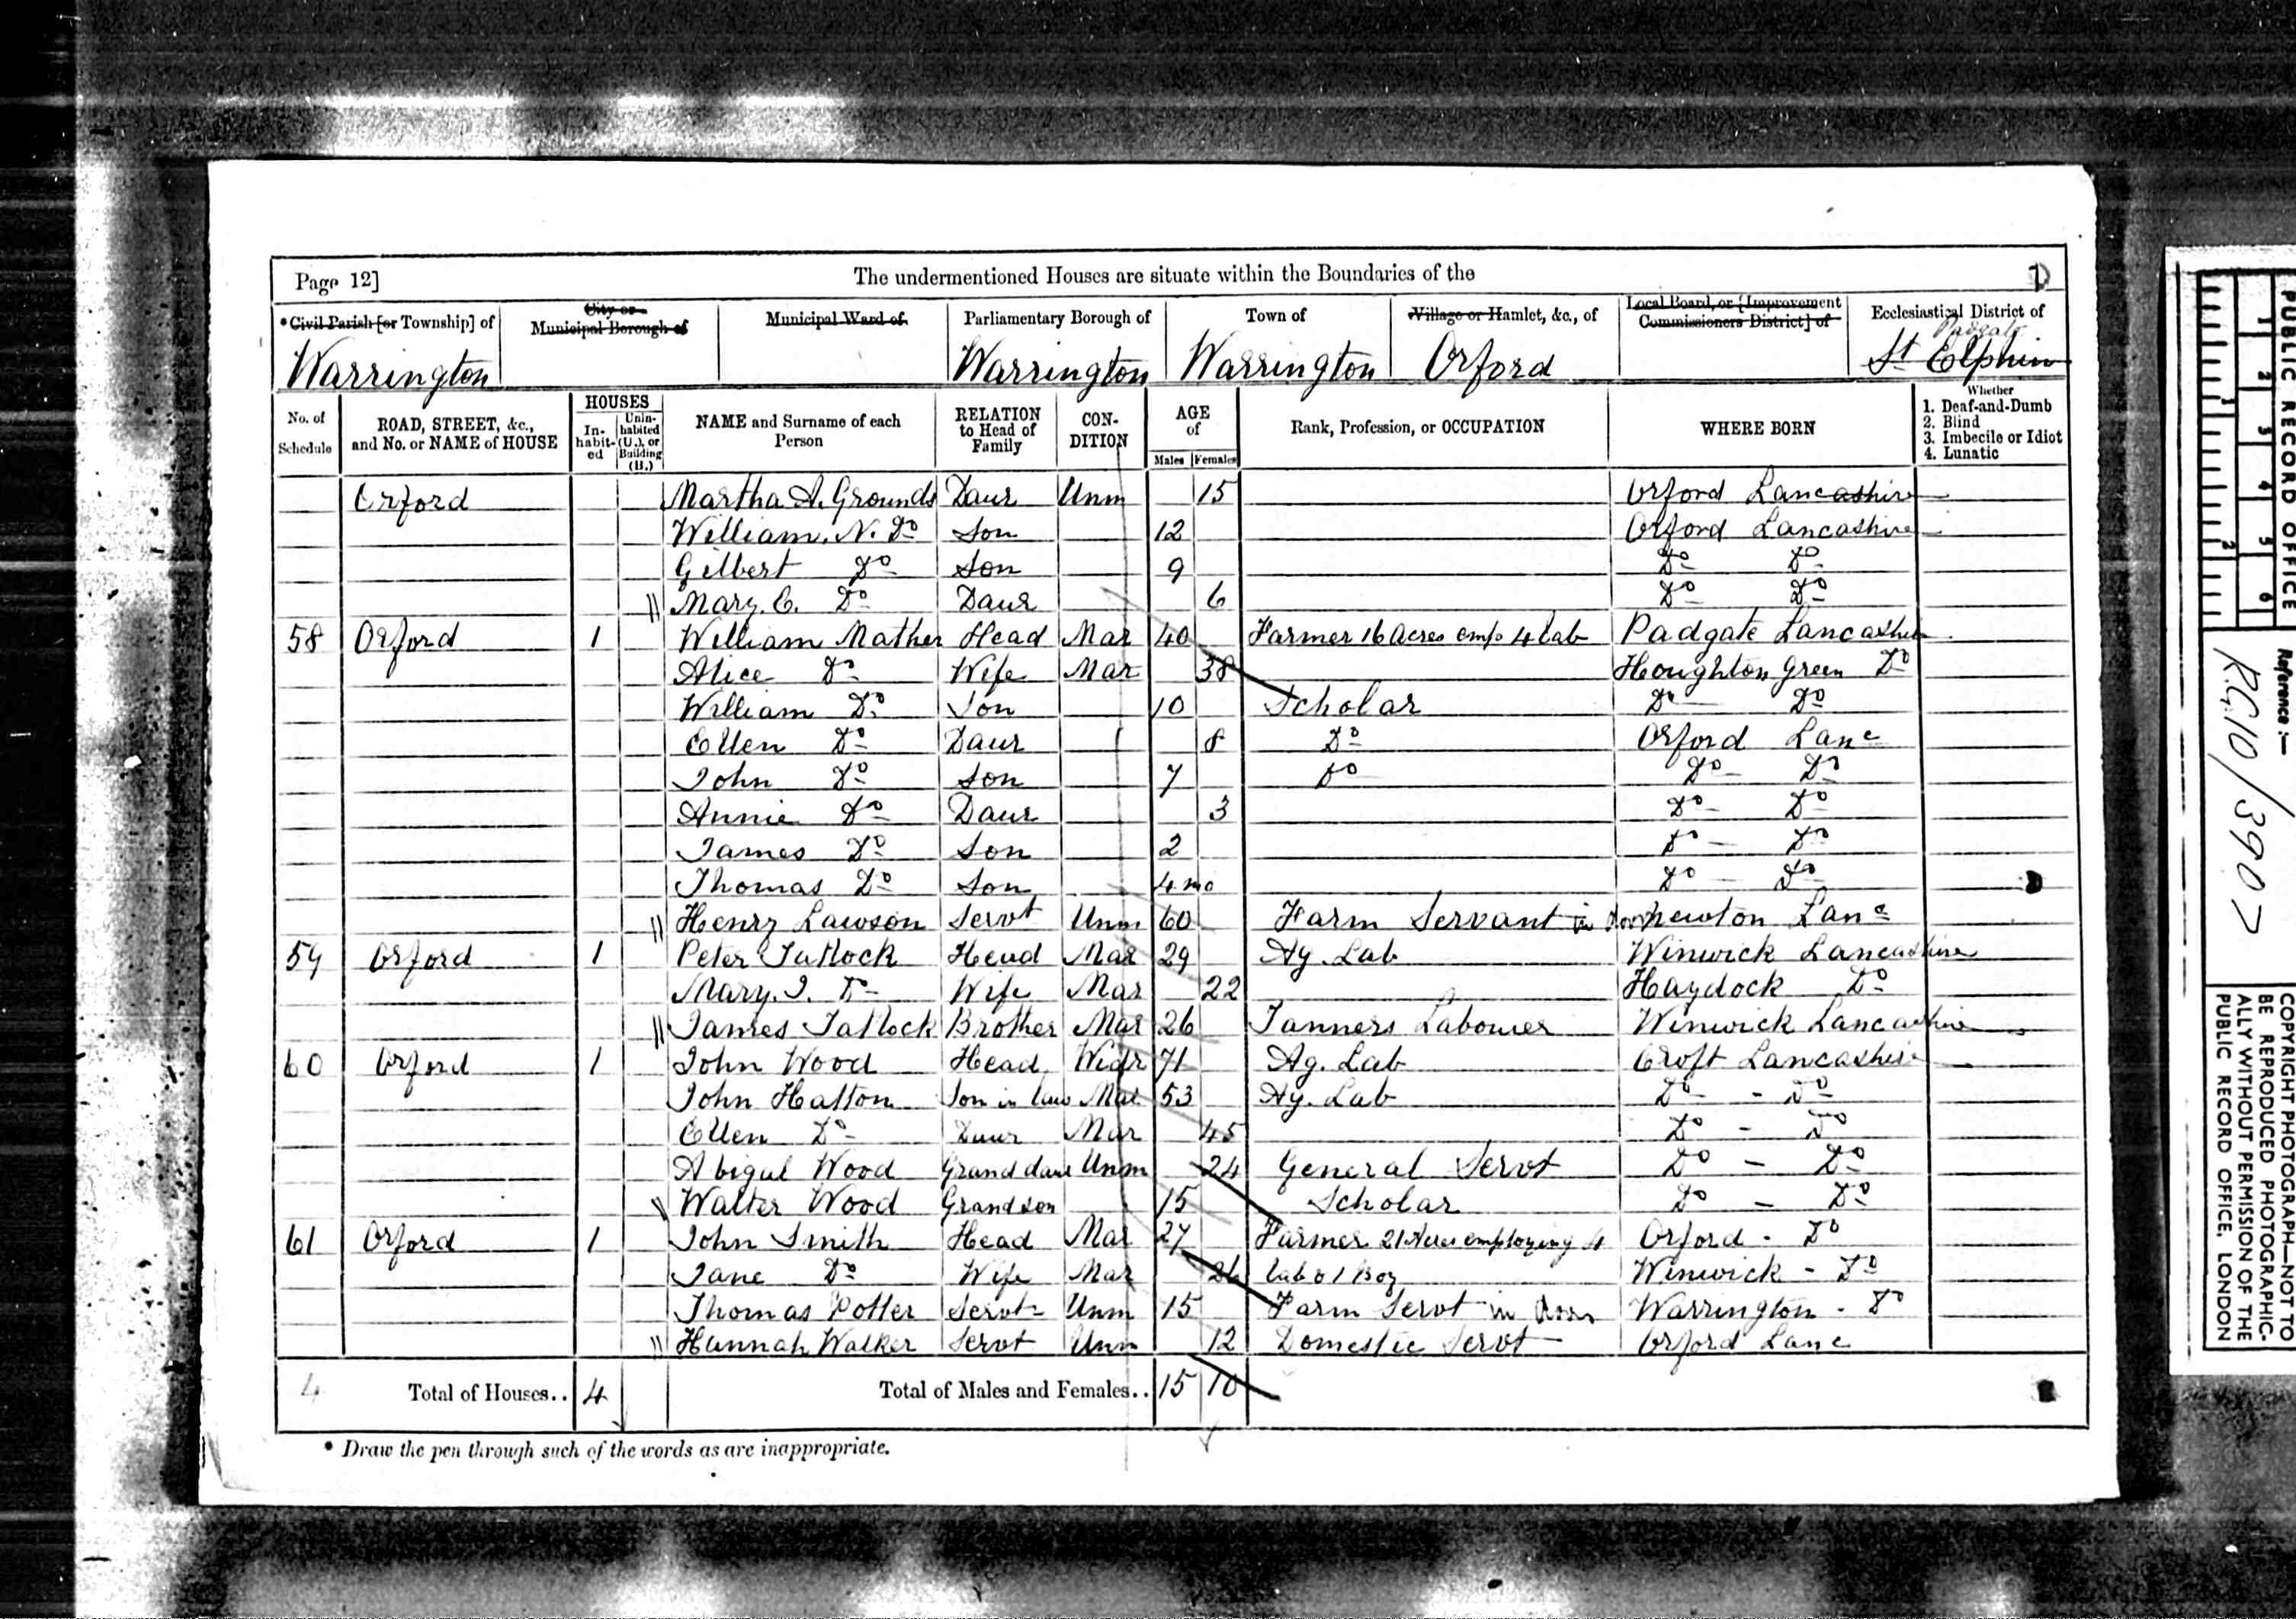 Page 12] The undermentioned Houses are situate within the Boundaries of the
*Civil Parish [or Township] of City or Municipal Borough of Municipal Ward of Parliamentary Borough of Town of Village or Hamlet, &c., of Local Board, or [Improvement Commissioners District] of Ecclesiastical District of
Padgate
Warrington Warrington Warrington Orford St Elphin
No. of Schedule ROAD, STREET, &c., and No. or NAME of HOUSE HOUSES Inhabited Uninhabited (U.), or Building (B.) NAME and Surname of each Person RELATION to Head of Family CONDITION AGE of Males Females Rank, Profession, or OCCUPATION WHERE BORN Whether 1. Deaf-and-Dumb 2. Blind 3. Imbecile or Idiot 4. Lunatic
Orford Martha A. Grounds Daur Unm 15 Orford Lancashire
William. N. Do Son 12 Orford Lancashire
Gilbert Do Son 9 Do Do
Mary. C. Do Daur 6 Do Do
58 Orford 1 William Mather Head Mar 40 Farmer 16 Acres emp 4 lab Padgate Lancashire
Alice Do Wife Mar 38 Houghton Green Do
William Do Son 10 Scholar Do Do
Ellen Do Daur 8 Do Orford Lanc
John Do Son 7 Do Do Do
Annie Do Daur 3 Do Do
James Do Son 2 Do Do
Thomas Do Son 4 mo Do Do
Henry Lawson Servt Unm 60 Farm Servant in door Newton Lanc
59 Orford 1 Peter Tatlock Head Mar 29 Ag. Lab Winwick Lancashire
Mary. J. Do Wife Mar 22 Haydock Do
James Tatlock Brother Mar 26 Tanners Labourer Winwick Lancashire
60 Orford 1 John Wood Head Widr 71 Ag. Lab Croft Lancashire
John Hatton Son in law Mar 53 Ag. Lab Do - Do
Ellen Do Daur Mar 45 Do - Do
Abigal Wood Grand daur Unm 24 General Servt Do - Do
Walter Wood Grandson 15 Scholar Do - Do
61 Orford 1 John Smith Head Mar 27 Farmer 21 Acres employing 4 Orford - Do
Jane Do Wife Mar 26 lab & 1 Boy Winwick - Do
Thomas Potter Servt Unm 15 Farm Servt in door Warrington - Do
Hannah Walker Servt Unm 12 Domestic Servt Orford Lanc
4 Total of Houses.. 4 Total of Males and Females.. 15 10
* Draw the pen through such of the words as are inappropriate.
PUBLIC RECORD OFFICE
1 2 3 4 5 6
1 2
Reference :-
RG10/3907
COPYRIGHT PHOTOGRAPH—NOT TO
BE REPRODUCED PHOTOGRAPHIC-
ALLY WITHOUT PERMISSION OF THE
PUBLIC RECORD OFFICE, LONDON